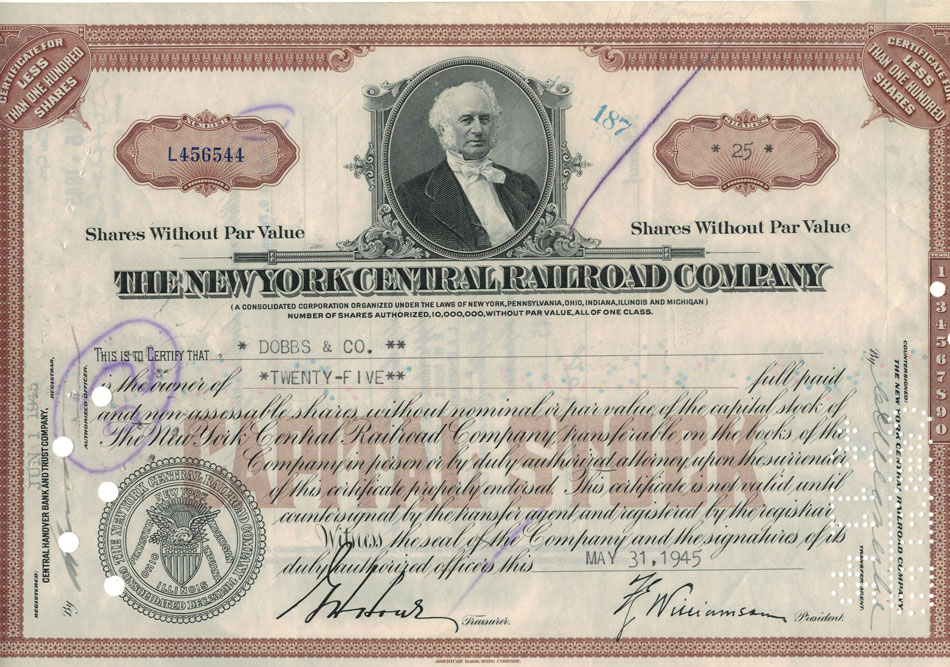 CERTIFICATE FOR
LESS
THAN ONE HUNDRED
SHARES
CERTIFICATE FOR
LESS
THAN ONE HUNDRED
SHARES
NUMBER
L456544
187
SHARES
* 25 *
Shares Without Par Value
Shares Without Par Value
THE NEW YORK CENTRAL RAILROAD COMPANY
(A CONSOLIDATED CORPORATION ORGANIZED UNDER THE LAWS OF NEW YORK, PENNSYLVANIA, OHIO, INDIANA, ILLINOIS AND MICHIGAN)
NUMBER OF SHARES AUTHORIZED, 10,000,000, WITHOUT PAR VALUE, ALL OF ONE CLASS.
THIS IS TO CERTIFY THAT * DOBBS & CO. **
is the owner of *TWENTY-FIVE** full paid
and non-assessable shares without nominal or par value, of the capital stock of
The New York Central Railroad Company, transferable on the books of the
Company in person or by duly authorized attorney, upon the surrender
of this certificate properly endorsed. This certificate is not valid until
countersigned by the transfer agent and registered by the registrar.
Witness the seal of the Company and the signatures of its
duly authorized officers this MAY 31, 1945
CAPITAL STOCK
F E Williamson
Treasurer.
President.
THE NEW YORK CENTRAL RAILROAD COMPANY
CONSOLIDATED DEC. 22, 1914
NEW YORK
PENNSYLVANIA
MICHIGAN
OHIO
INDIANA
ILLINOIS
REGISTERED:
CENTRAL HANOVER BANK AND TRUST COMPANY,
REGISTRAR,
By
AUTHORIZED OFFICER.
JUN 1 1945
COUNTERSIGNED:
THE NEW YORK CENTRAL RAILROAD COMPANY
By
TRANSFER AGENT.
TENS
1
3
4
5
6
7
8
9
0
AMERICAN BANK NOTE COMPANY.